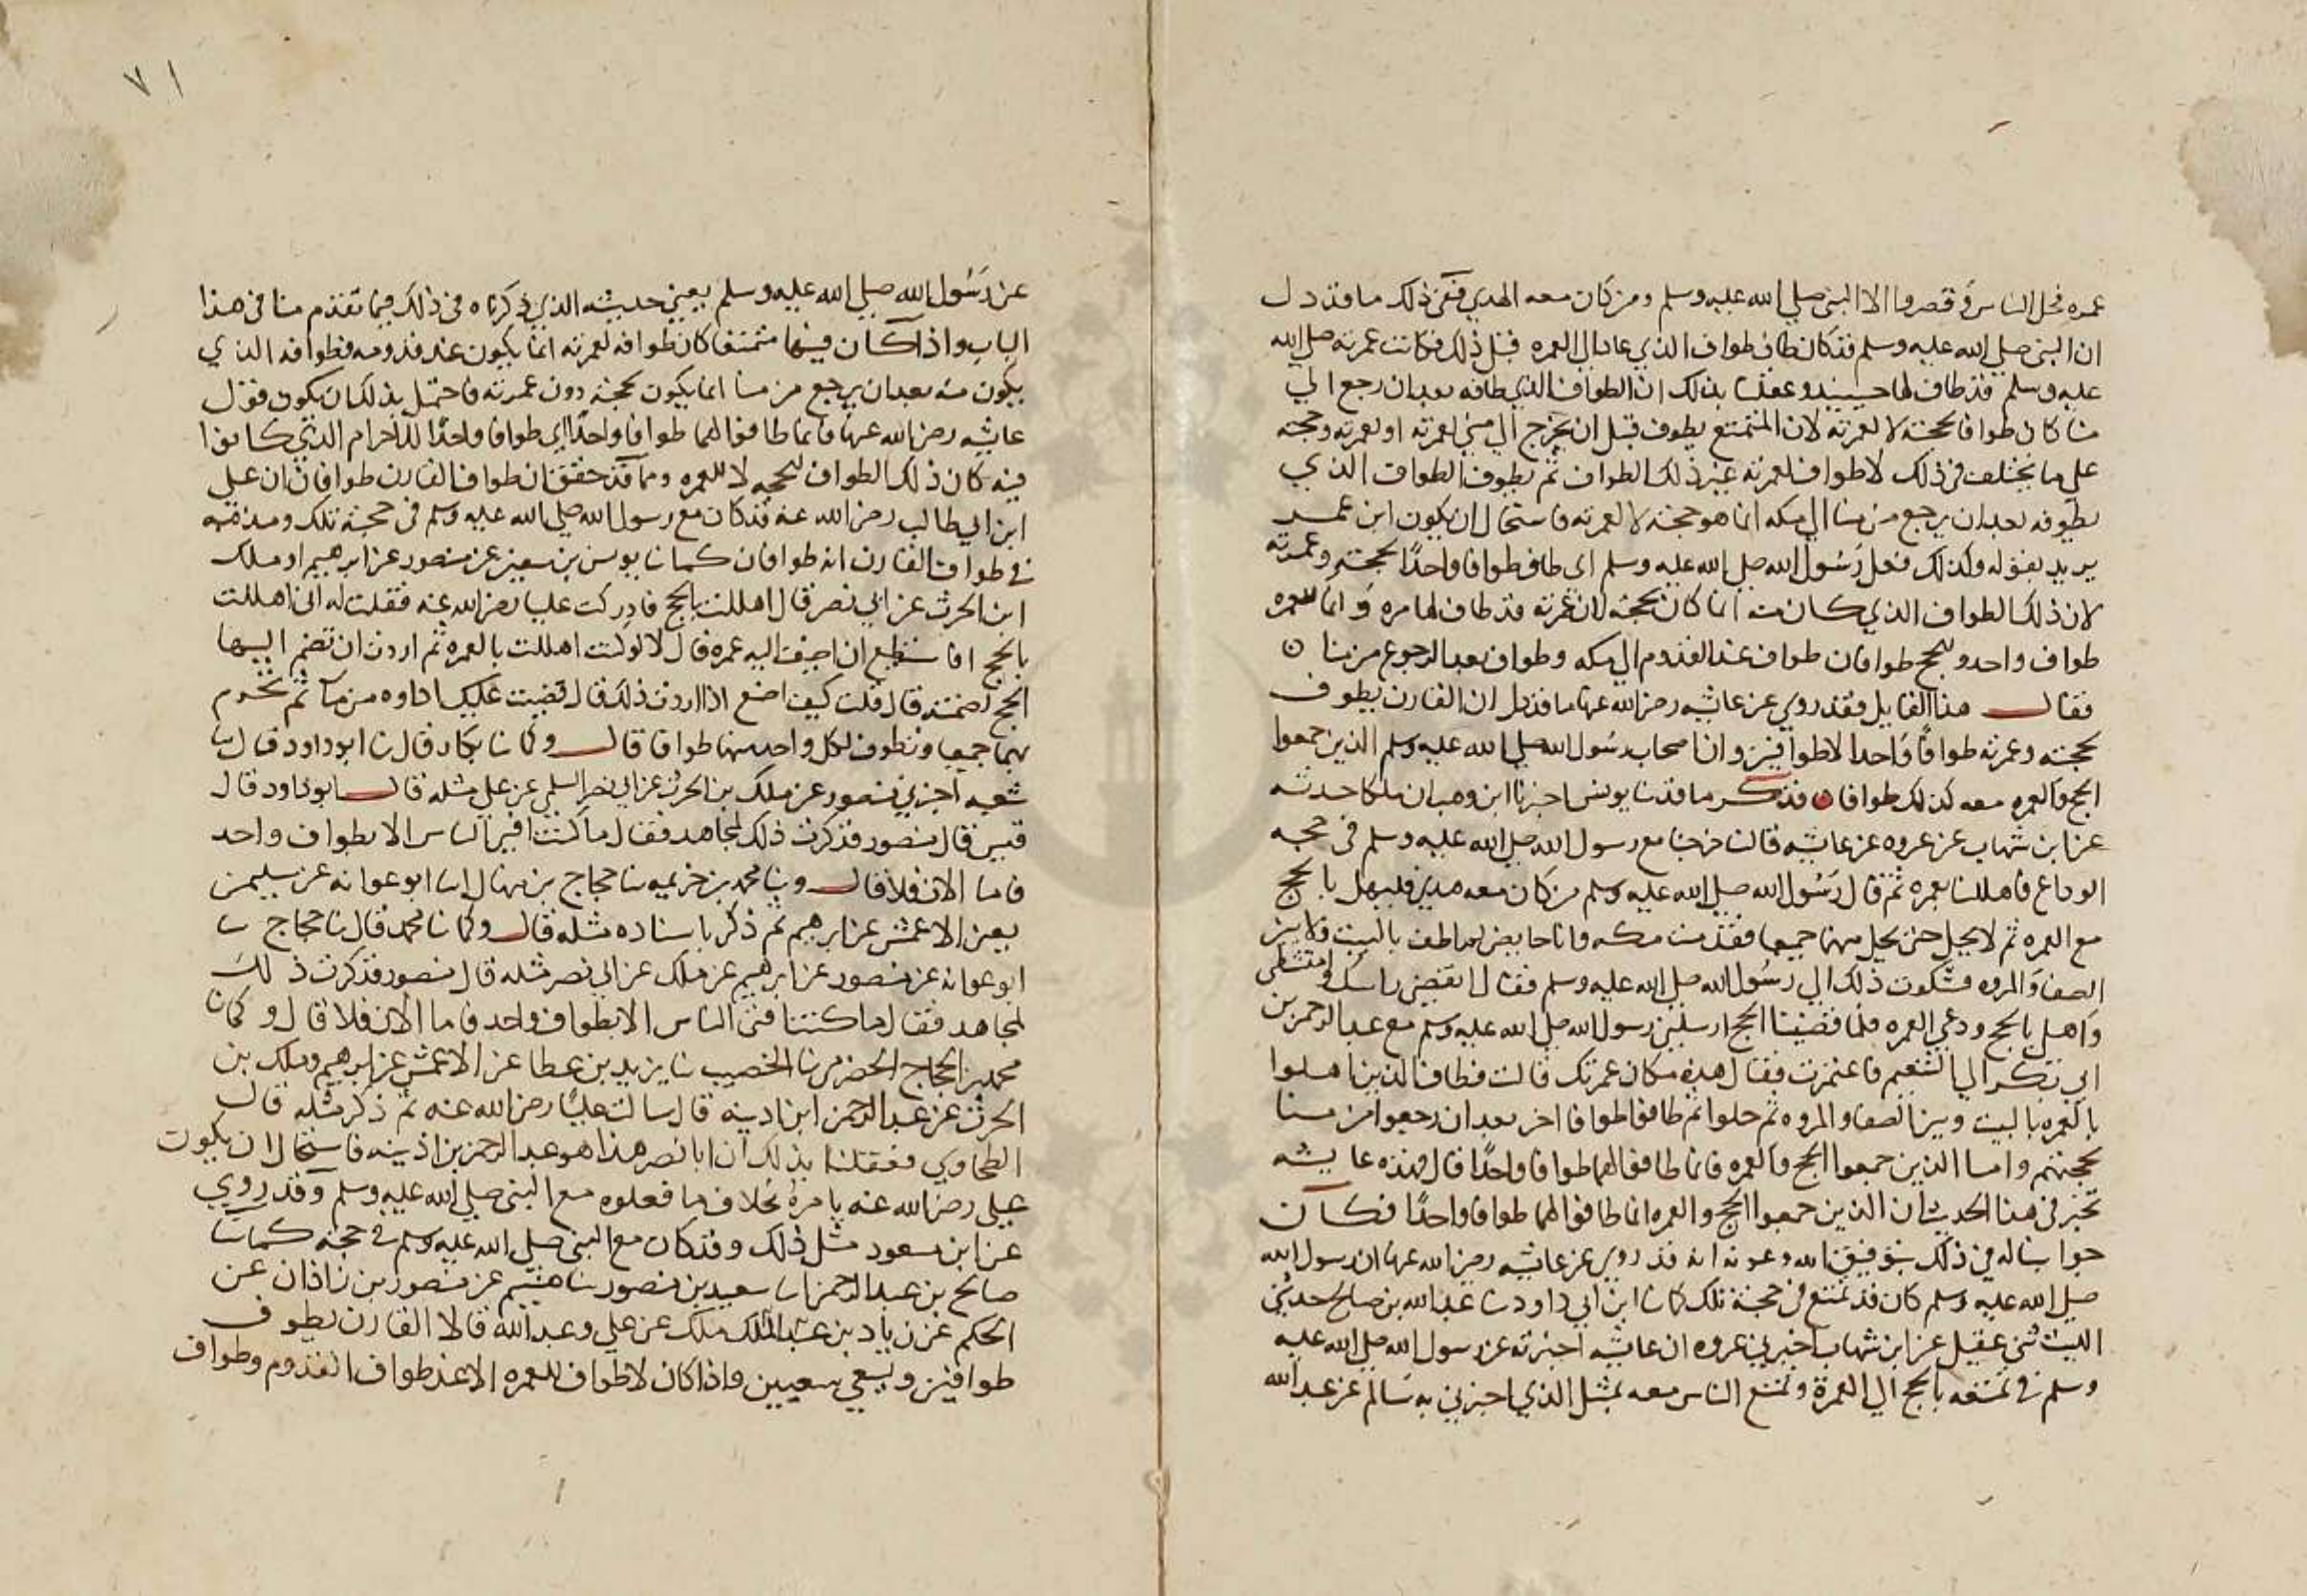 عمره فحل الناس وقصروا الا النبي صلي الله عليه وسلم ومن كان معه الهدي ففي ذلك ما قد دل
ان النبي صلي الله عليه وسلم قد كان طاف طوافا الذي عاد الي العمره قبل ذلك فكانت عمرته صلي الله
عليه وسلم قد طاف لها حينيذ وعقلنا بذلك ان الطواف الذي طافه بعد ان رجع الي
منا كان طوافا لحجته لا لعمرته لان المتمتع يطوف قبل ان يخرج الي مني لعمرته او لعمرته وحجته
علي ما يختلف في ذلك لا طواف لعمرته غير ذلك الطواف ثم يطوف الطواف الذي
يطوفه بعد ان يرجع من منا الي مكه انما هو لحجته لا لعمرته فاستحال ان يكون ابن عمر
يريد بقوله وكذلك فعل رسول الله صلي الله عليه وسلم اي طاف طوافا واحدا لحجته وعمرته
لان ذلك الطواف الذي كان منه انما كان لحجته لان عمرته قد طاف لها مره وانما للعمره
طواف واحد وللحج طوافان طواف عند القدوم الي مكه وطواف بعد الرجوع من منا ٥
فقال هذا القايل فقد روي عن عايشه رضي الله عنها ما قد دل ان القارن يطوف
لحجته وعمرته طوافا واحدا لا طوافين وان اصحاب رسول الله صلي الله عليه وسلم الذين جمعوا
الحج والعمره معه كذلك طوافا ٥ فذكر ما قد نا يونس اخبرنا ابن وهب ان ملكا حدثه
عن ابن شهاب عن عروه عن عايشه قالت خرجنا مع رسول الله صلي الله عليه وسلم في حجه
الوداع فاهللنا بعمره ثم قال رسول الله صلي الله عليه وسلم من كان معه هدي فليهل بالحج
مع العمره ثم لا يحل حتي يحل منهما جميعا فقدمت مكه وانا حايض لم اطف بالبيت ولا بين
الصفا والمروه فشكوت ذلك الي رسول الله صلي الله عليه وسلم فقال انقضي راسك وامتشطي
واهلي بالحج ودعي العمره فلما قضينا الحج ارسلني رسول الله صلي الله عليه وسلم مع عبد الرحمن بن
ابي بكر الي التنعيم فاعتمرت فقال هذه مكان عمرتك قالت فطاف الذين اهلوا
بالعمره بالبيت وبين الصفا والمروه ثم حلوا ثم طافوا طوافا اخر بعد ان رجعوا من منا
لحجتهم واما الذين جمعوا الحج والعمره فانما طافوا لهما طوافا واحدا قال فهذه عايشه
تخبر في هذا الحديث ان الذين جمعوا الحج والعمره انما طافوا لهما طوافا واحدا فكان
جوابنا له في ذلك بتوفيق الله وعونه انه قد روي عن عايشه رضي الله عنها ان رسول الله
صلي الله عليه وسلم كان قد تمتع في حجته تلك كما نا ابن ابي داود نا عبد الله بن صالح حدثني
الليث ثني عقيل عن ابن شهاب اخبرني عروه ان عايشه اخبرته عن رسول الله صلي الله عليه
وسلم في تمتعه بالحج الي العمرة وتمتع الناس معه بمثل الذي اخبرني به سالم عن عبد الله
٧١
عن رسول الله صلي الله عليه وسلم يعني حديثه الذي ذكرناه في ذلك فيما تقدم منا في هذا
الباب واذا كان فيها متمتعا كان طوافه لعمرته انما يكون عند قدومه وطوافه الذي
يكون منه بعد ان يرجع من منا انما يكون لحجته دون عمرته فاحتمل بذلك ان يكون قول
عايشه رضي الله عنها فانما طافوا لهما طوافا واحدا اي طوافا واحدا للاحرام الذي كانوا
فيه كان ذلك الطواف للحجه لا للعمره ومما قد حقق ان طواف القارن طوافان ان علي
ابن ابي طالب رضي الله عنه قد كان مع رسول الله صلي الله عليه وسلم في حجته تلك ومذهبه
في طواف القارن انه طوافان كما نا يونس بن سفين عن منصور عن ابرهيم او ملك
ابن الحرث عن ابي نصر قال اهللت بالحج فادركت عليا رضي الله عنه فقلت له اني اهللت
بالحج افاستطيع ان اضيف اليه عمره قال لا لو كنت اهللت بالعمره ثم اردت ان تضم اليها
الحج لضممته قال قلت كيف اصنع اذا اردت ذلك قال تصب عليك اداوه من ما ثم تحرم
بهما جميعا وتطوف لكل واحد منهما طوافا قال وكما نا بكار قال نا ابو داود قال نا
شعبه اخبرني منصور عن ملك بن الحرث عن ابي نصر السلمي عن علي مثله قال ابو داود قال
قيس قال منصور فذكرت ذلك لمجاهد فقال ما كنت افتي الناس الا بطواف واحد
فاما الان فلا قال وبنا محمد بن خزيمه نا حجاج بن منهال نا ابو عوانه عن سليمن
يعني الاعمش عن ابرهيم ثم ذكر باسناده مثله قال وكما نا محمد قال نا حجاج نا
ابو عوانه عن منصور عن ابرهيم عن ملك عن ابي نصر مثله قال منصور فذكرت ذلك
لمجاهد فقال ما كنت افتي الناس الا بطواف واحد فاما الان فلا قال وكما نا
محمد بن الحجاج الحضرمي نا الخصيب نا يزيد بن عطا عن الاعمش عن ابرهيم وملك بن
الحرث عن عبد الرحمن ابن اذينه قال سالت عليا رضي الله عنه ثم ذكر مثله قال
الطحاوي فعقلنا بذلك ان ابا نصر هذا هو عبد الرحمن بن اذينه فاستحال ان يكون
علي رضي الله عنه يامره بخلاف ما فعلوه مع النبي صلي الله عليه وسلم وقد روي
عن ابن مسعود مثل ذلك وقد كان مع النبي صلي الله عليه وسلم في حجته كما نا
صالح بن عبد الرحمن نا سعيد بن منصور نا هشيم عن منصور بن زاذان عن
الحكم عن زياد بن ملك عن علي وعبد الله قالا القارن يطوف
طوافين ويسعي سعيين واذا كان لا طواف للعمره الا عند طواف القدوم وطواف